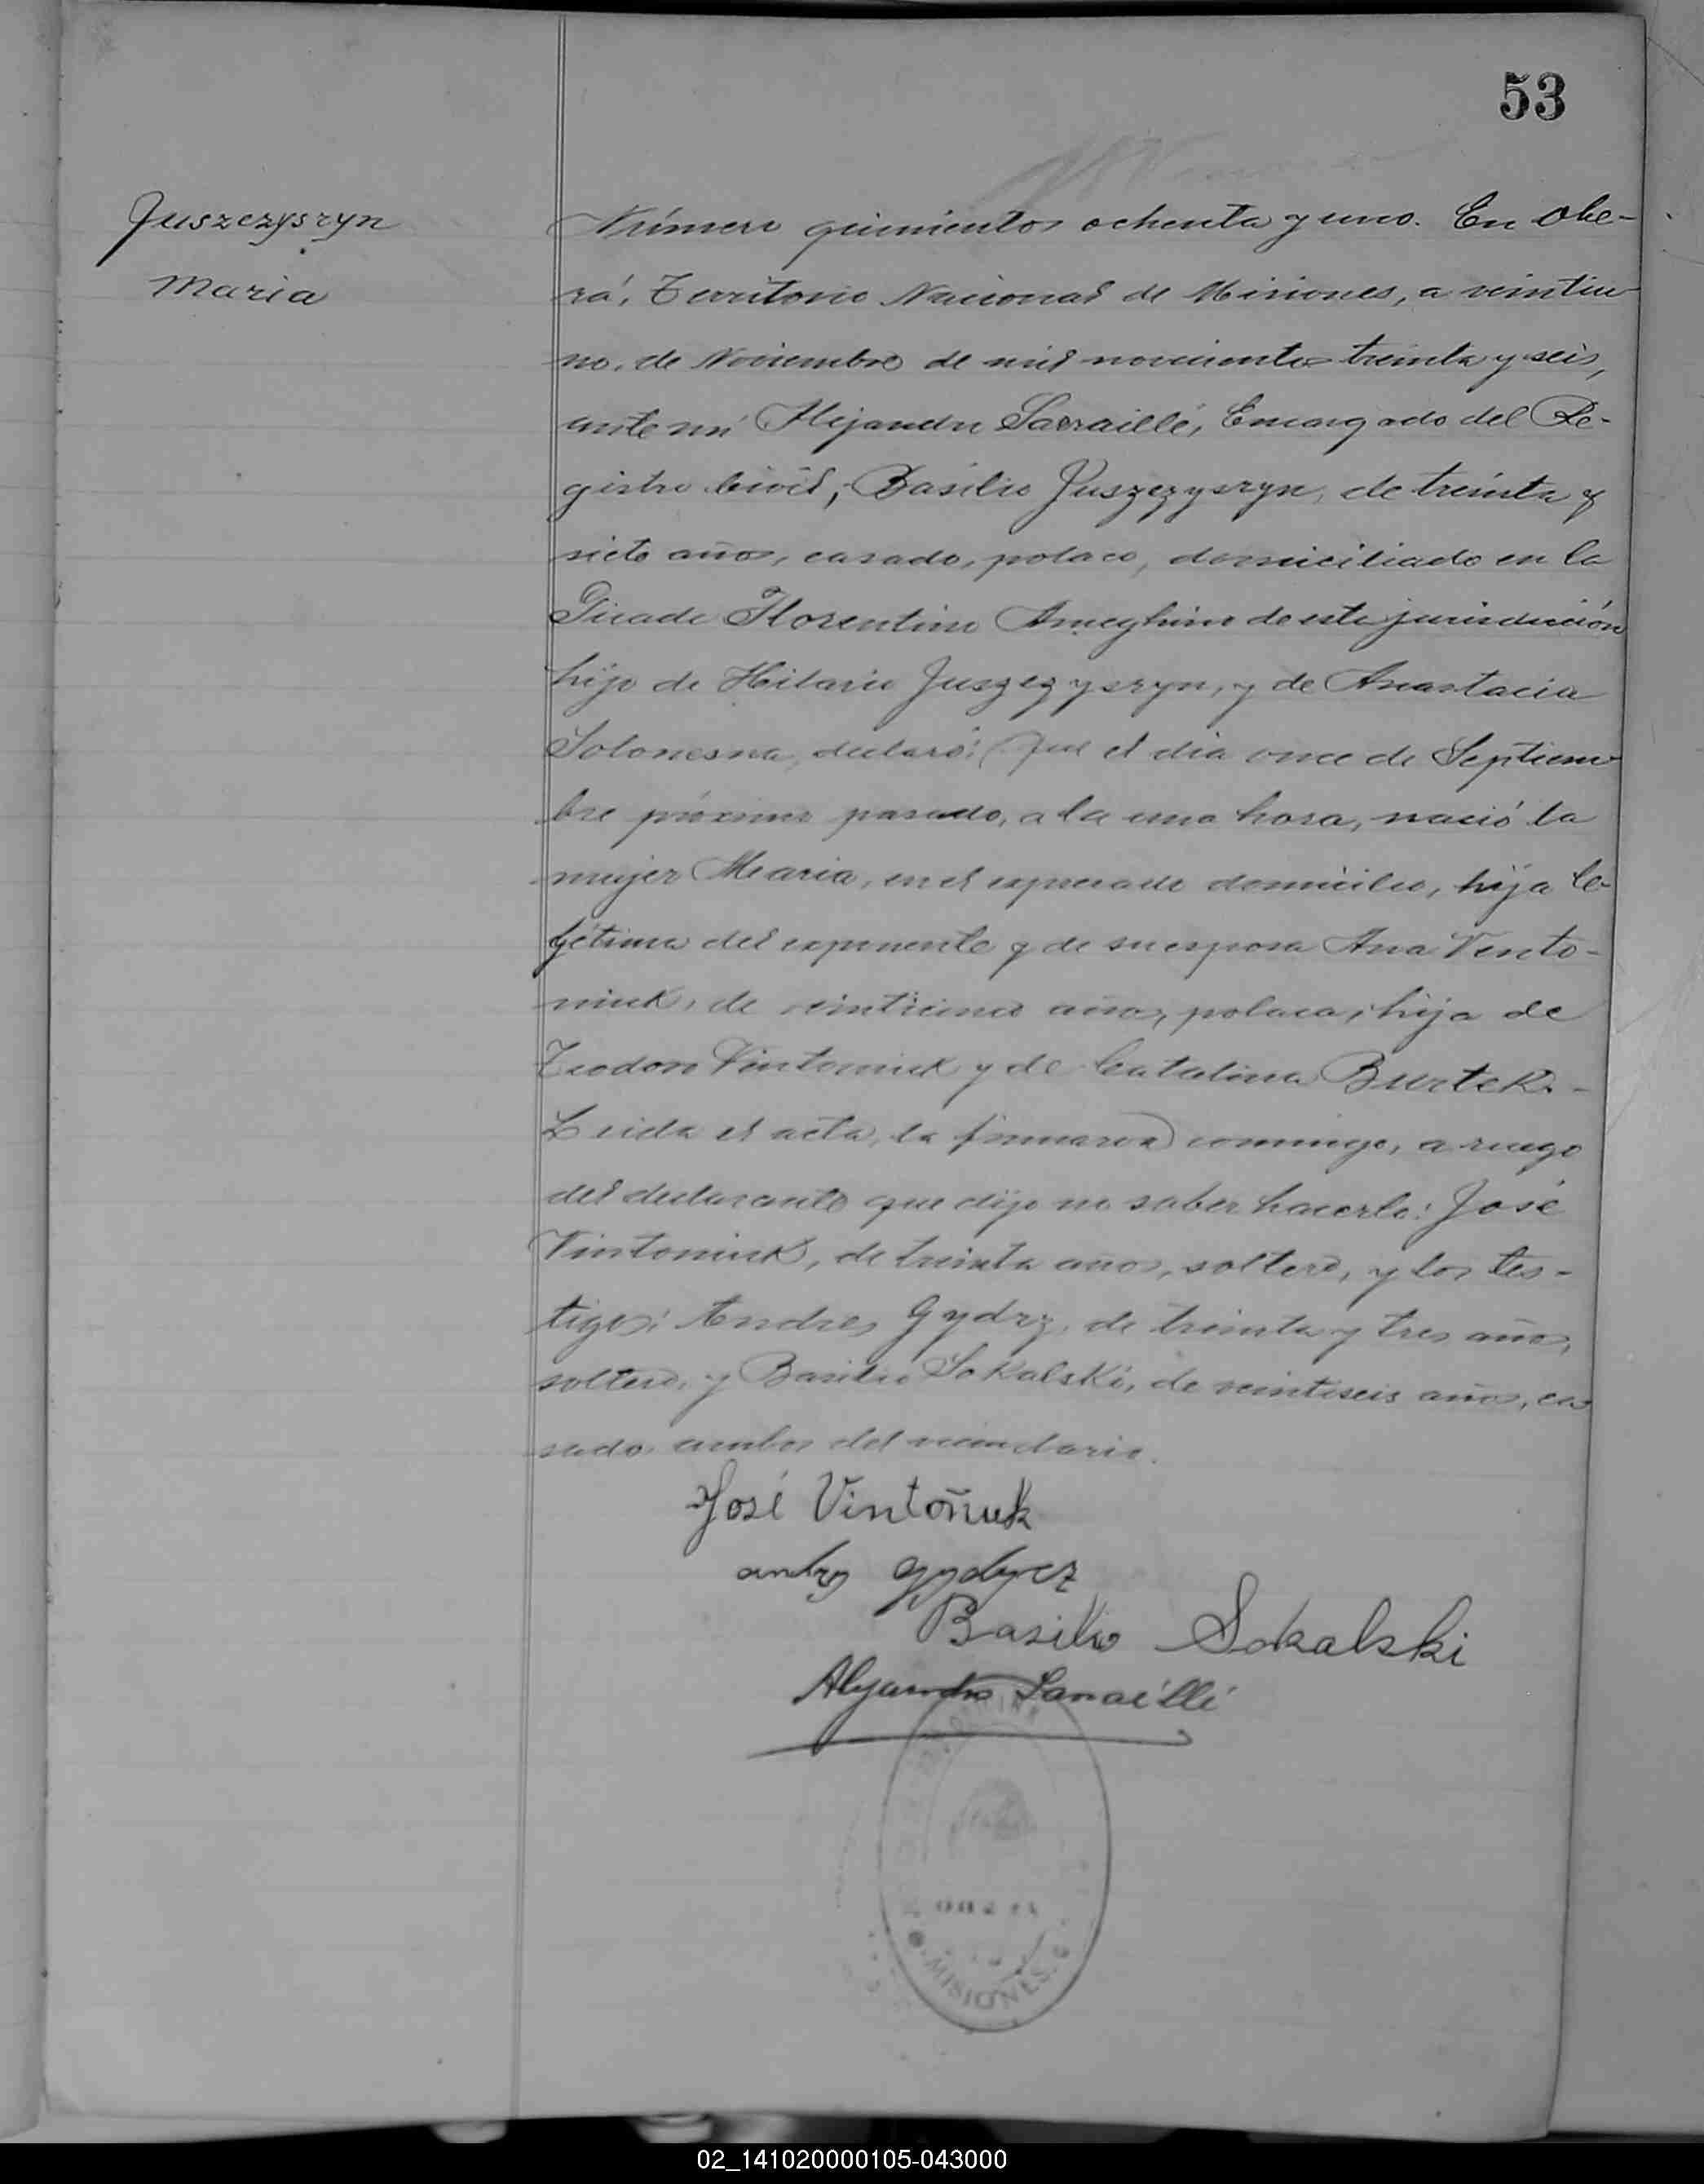 53
Juszczyszyn
Maria
Número quinientos ochenta y uno. En Obe-
rá, Territorio Nacional de Misiones, a veintiu-
no, de Noviembre de mil novecientos treinta y seis,
ante mí Alejandro Sarraillé, Encargado del Re-
gistro Civil, Basilio Juszczyszyn, de treinta y
siete años, casado, polaco, domiciliado en la
Picada Florentino Ameghino de esta jurisdicción
hijo de Hilario Juszczyszyn, y de Anastacia
Solonesna, declaró: Que el día once de Septiem-
bre próximo pasado, a la una hora, nació la
mujer Maria, en el expresado domicilio, hija le-
gítima del exponente y de su esposa Ana Vento-
niuk, de veinticinco años, polaca, hija de
Teodoro Vintoniuk y de Catalina Burtek. -
Leida el acta, la firmaron conmigo, a ruego
del declarante que dijo no saber hacerlo: José
Vintoniuk, de treinta años, soltero, y los tes-
tigos: Andres Gydrz, de treinta y tres años,
soltero, y Basilio Sokalski, de veintiseis años, ca-
sado ambos del vecindario.
José Vintoñuk
andrz gydycz
Basilio Sokalski
Alejandro Sarraillé
MISIONES
02_141020000105-043000